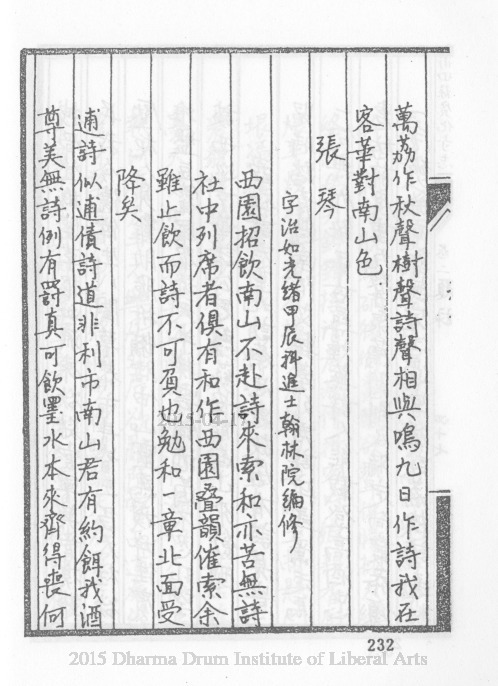 萬荔作秋聲樹聲詩聲相與鳴九日作詩我在
客華對南山色
張琴
字治如光緒甲辰科進士翰林院編修
西園招飲南山不赴詩來索和亦苦無詩
社中列席者俱有和作西園疊韻催索余
雖止飲而詩不可負也勉和一章北面受
降矣
逋詩似逋債詩道非利市南山君有約餌我酒
尊美無詩例有罰真可飲墨水本來齊得喪何
232
2015-04-1
2015 Dharma Drum Institute of Liberal Arts